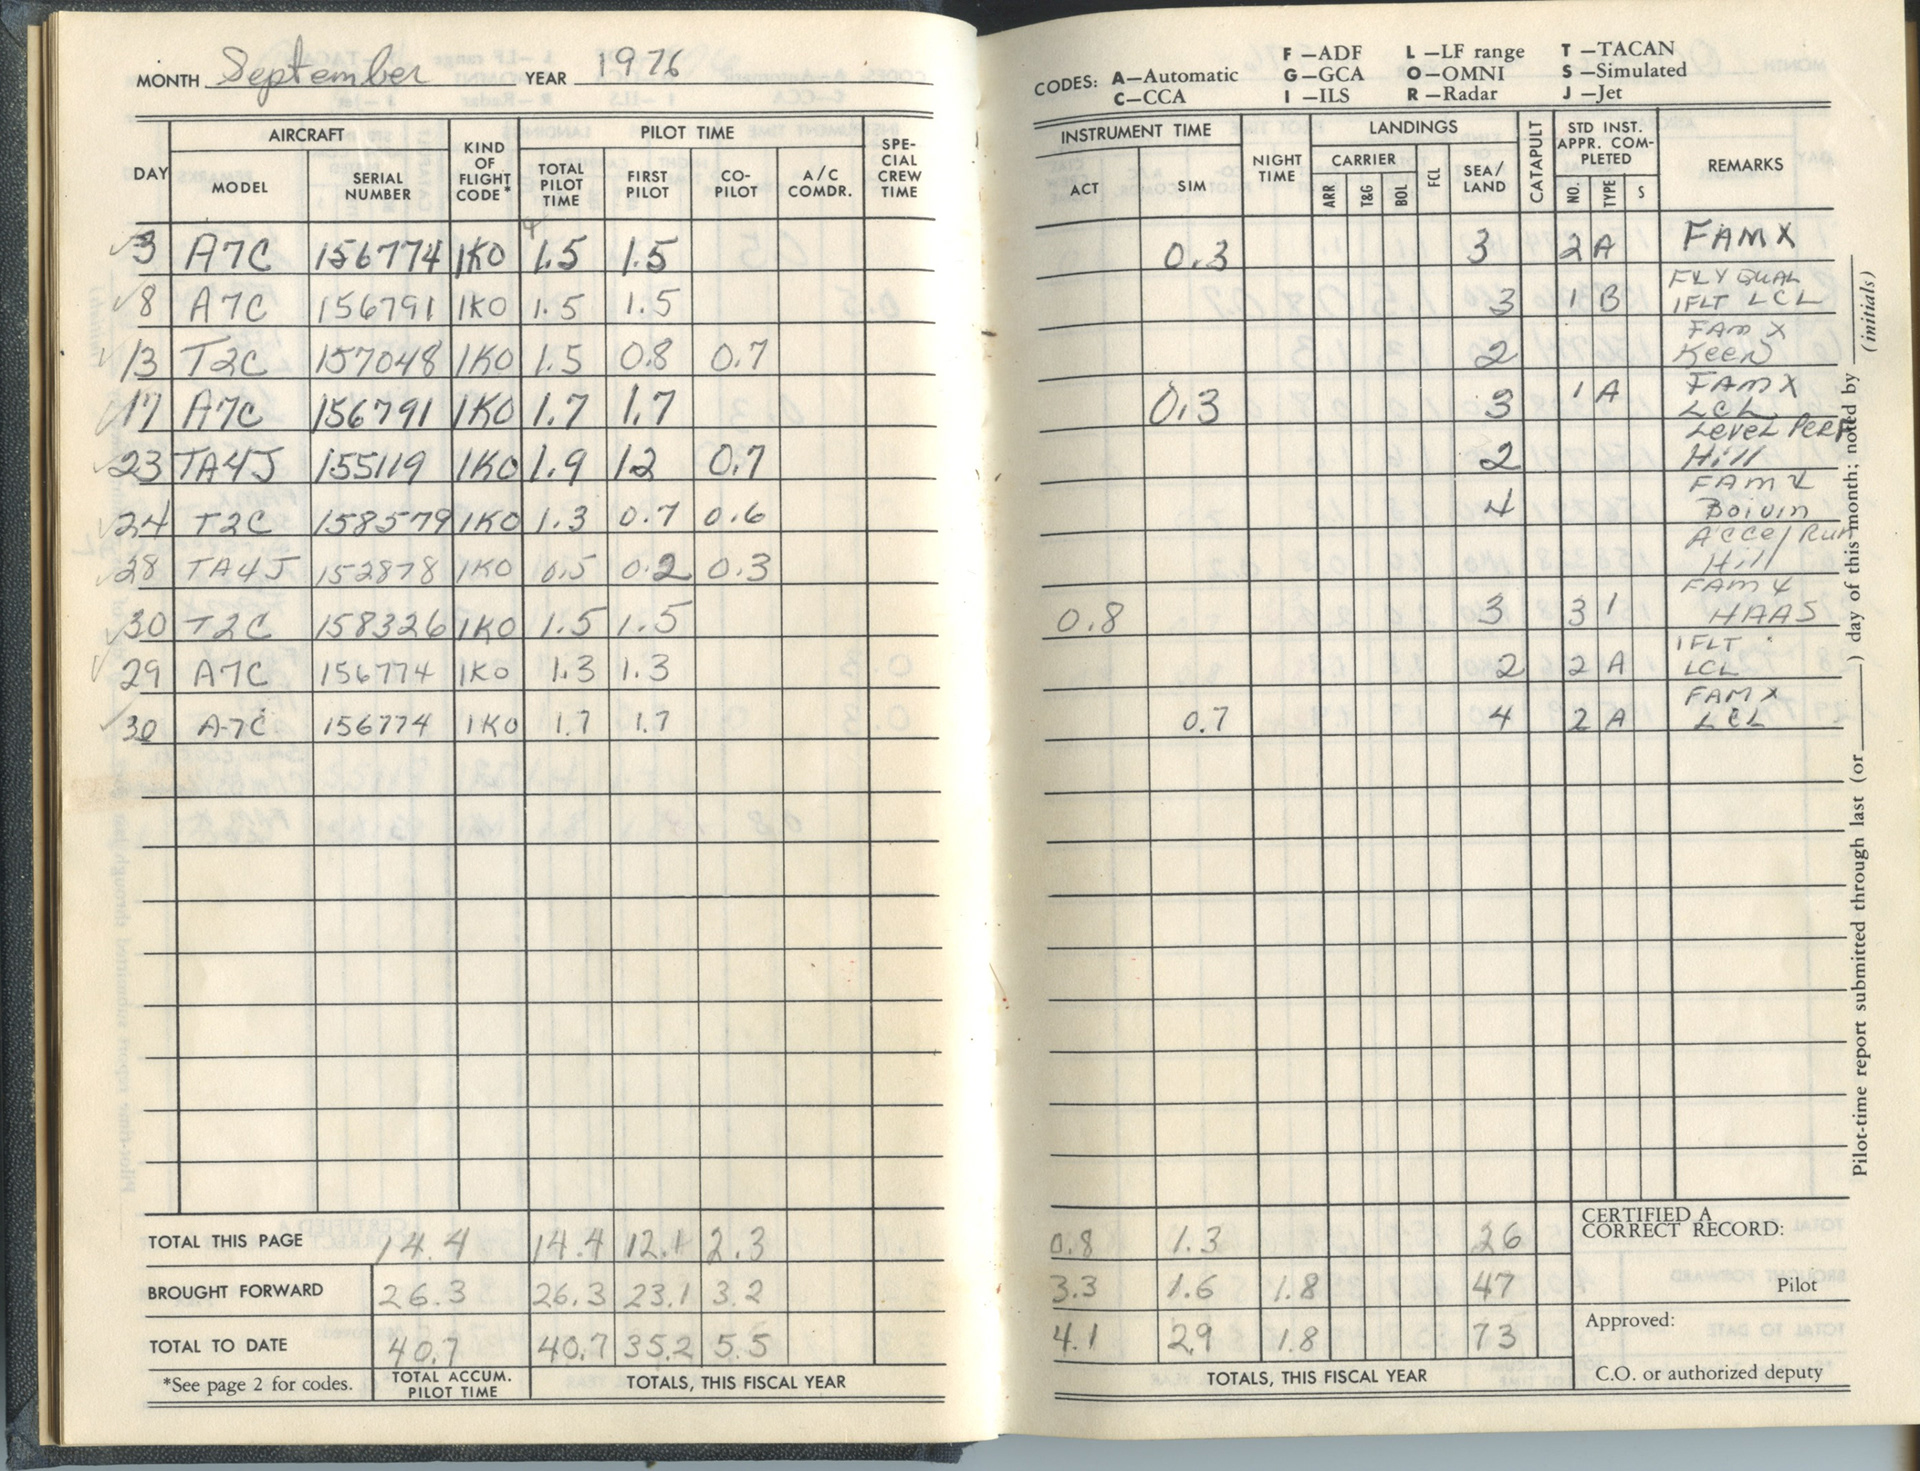 MONTH September YEAR 1976
DAY
AIRCRAFT
MODEL
SERIAL NUMBER
KIND OF FLIGHT CODE*
PILOT TIME
TOTAL PILOT TIME
FIRST PILOT
CO-PILOT
A/C COMDR.
SPE-CIAL CREW TIME
3 A7C 156774 1K0 1.5 1.5
8 A7C 156791 1K0 1.5 1.5
13 T2C 157048 1K0 1.5 0.8 0.7
17 A7C 156791 1K0 1.7 1.7
23 TA4J 155119 1K0 1.9 12 0.7
24 T2C 158579 1K0 1.3 0.7 0.6
28 TA4J 152878 1K0 0.5 0.2 0.3
30 T2C 158326 1K0 1.5 1.5
29 A7C 156774 1K0 1.3 1.3
30 A-7C 156774 1K0 1.7 1.7
TOTAL THIS PAGE 14.4 14.4 12.1 2.3
BROUGHT FORWARD 26.3 26.3 23.1 3.2
TOTAL TO DATE 40.7 40.7 35.2 5.5
*See page 2 for codes.
TOTAL ACCUM. PILOT TIME
TOTALS, THIS FISCAL YEAR
CODES: A—Automatic
C—CCA
F—ADF
G—GCA
I—ILS
L—LF range
O—OMNI
R—Radar
T—TACAN
S—Simulated
J—Jet
INSTRUMENT TIME
ACT
SIM
NIGHT TIME
LANDINGS
CARRIER
ARR
T&G
BOL
FCL
SEA/LAND
CATAPULT
STD INST. APPR. COM-PLETED
NO.
TYPE
S
REMARKS
0.3 3 2 A FAM X
3 1 B FLY QUAL
IFLT LCL
2 FAM X
Keen
0.3 3 1 A FAM X
LCL
2 Level Perf
Hill
4 FAM X
Boivin
Accel Run
Hill
0.8 3 3 1 FAM X
HAAS
2 2 A IFLT
LCL
0.7 4 2 A FAM X
LCL
0.8 1.3 26
3.3 1.6 1.8 47
4.1 2.9 1.8 73
TOTALS, THIS FISCAL YEAR
CERTIFIED A
CORRECT RECORD:
Pilot
Approved:
C.O. or authorized deputy
Pilot-time report submitted through last (or ) day of this month; noted by (initials)